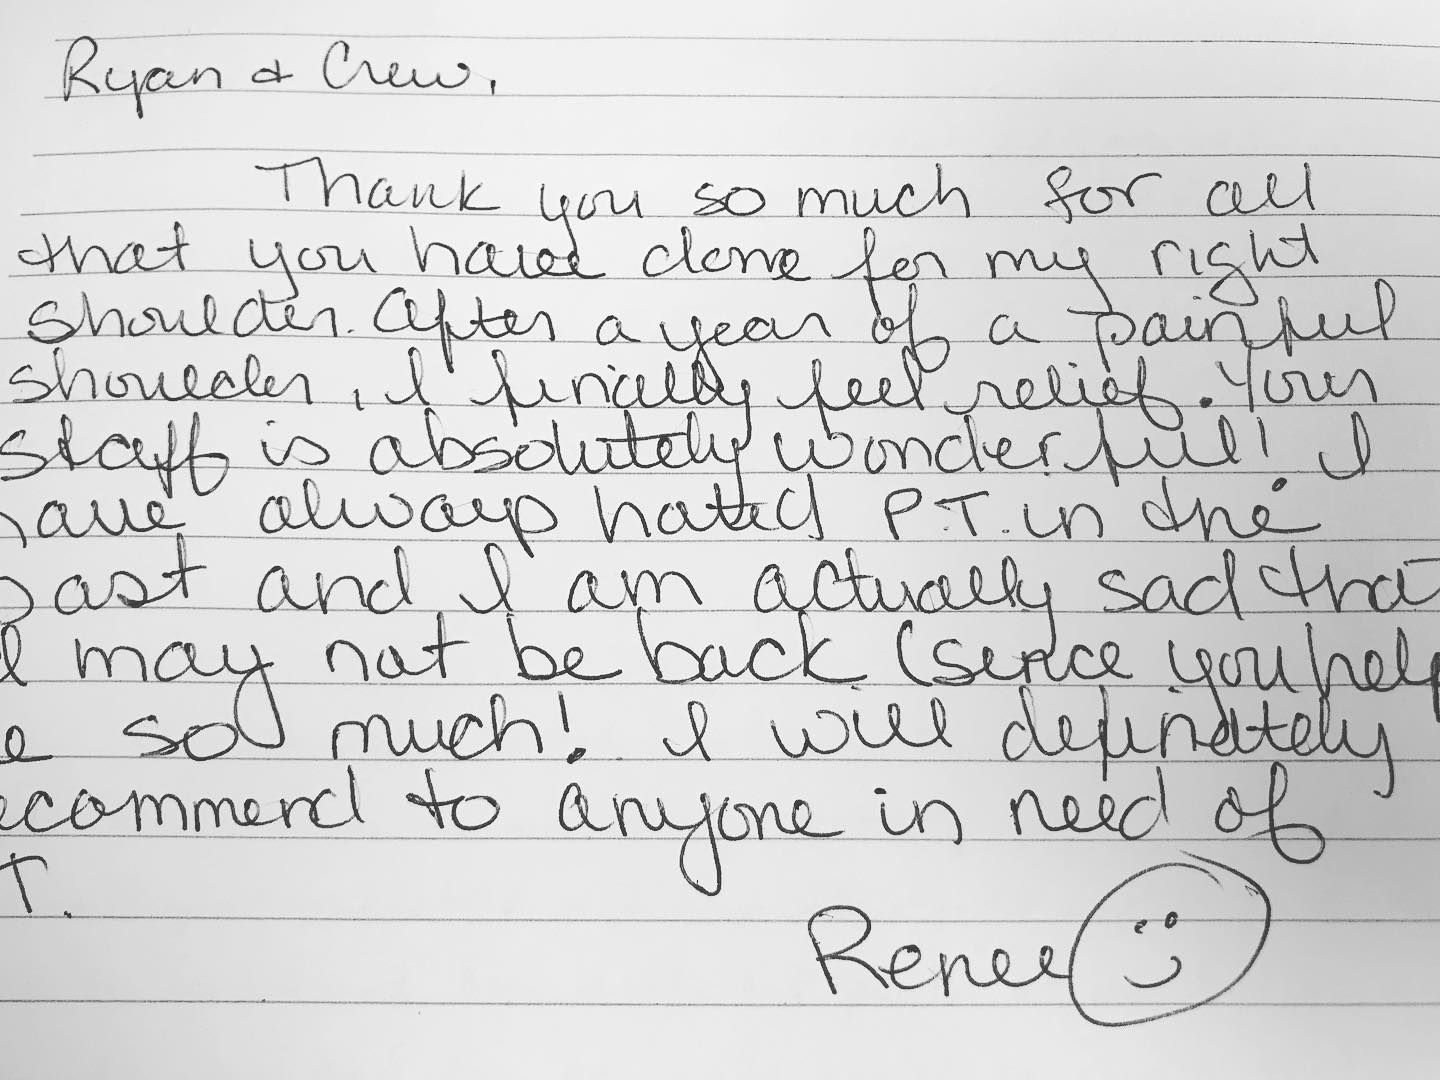 Ryan & Crew,
Thank you so much for all
that you have done for my right
shoulder. After a year of a painful
shoulder, I finally feel relief. Your
staff is absolutely wonderful! I
have always hated P.T. in the
past and I am actually sad that
I may not be back (sence you help
e so much! I will definately
ecommend to anyone in need of
T.
Renee